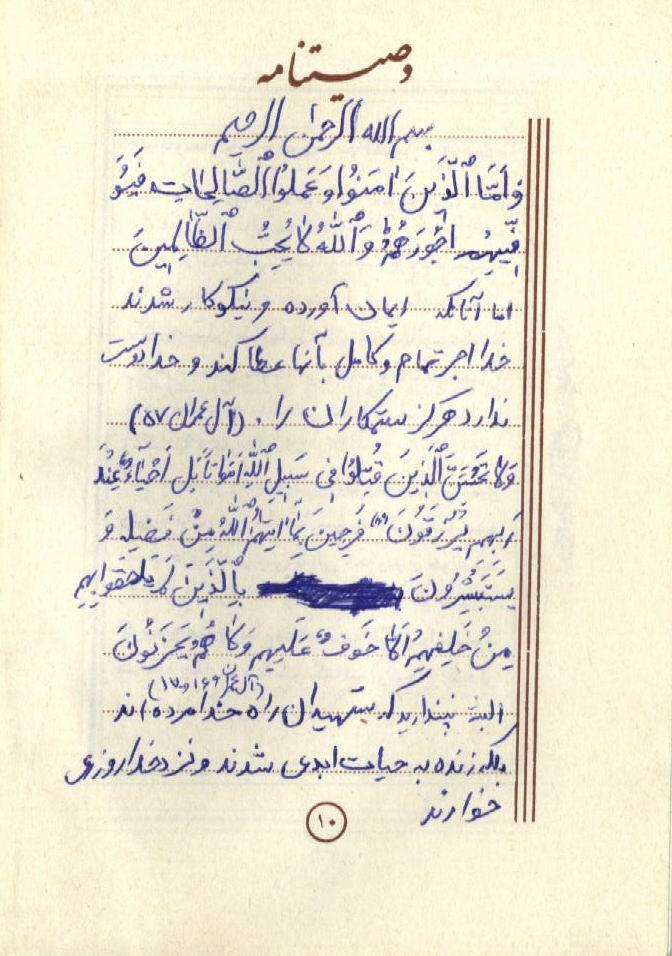 وصیتنامه
بسم الله الرحمن الرحیم
وَاَمَّا ٱلَّذینَ ءامَنُوا وَعَمِلوُا ٱلصَّالِحَاتِ فَیُوَ
فّیهِمْ اُجُورَهُمْ وَٱللهُ لایُحِبُّ ٱلظّالِمینَ
اما آنانکه ایمان آورده و نیکوکار شدند
خدا اجر تمام و کامل بآنها عطا کند و خدا دوست
ندارد هرگز ستمکاران را . (آل عمران ۵۷)
وَلا تَحْسَبَنَّ ٱلَّذینَ قُتِلوُا فی سَبیلِ ٱللهِ اَمْواتاً بَل اَحْیٰآءٌ عِنْدَ
رَبِّهِم یُرْزَقُونَ فَرِحینَ بِمٰا اتیٰهُمُ ٱللهُ مِنْ فَضْلِهِ وَ
یَسْتَبْشِرُونَ بِٱلَّذینَ لَمْ یَلْحَقوُا بِهِم
مِنْ خَلْفِهِمْ اَلّا خَوفٌ عَلَیهِم وَلا هُمْ یَحْزَنُونَ
(آل عمران ۱۶۹ و ۱۷۰)
البته نپندارید که شهیدان راه خدا مرده اند
بلکه زنده به حیات ابدی شدند و نزد خدا روزی
خوارند
۱۰